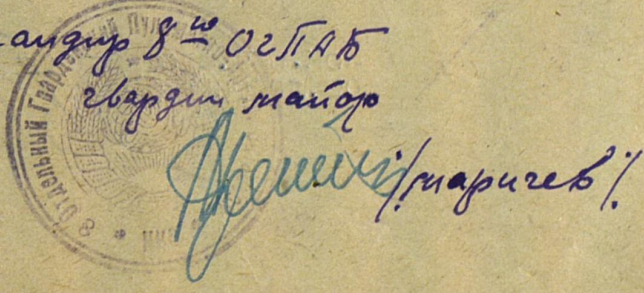 андир 8го ОгПАБ
гвардии майор
/маричев/.
8 Отдельный Гвардейский Пул